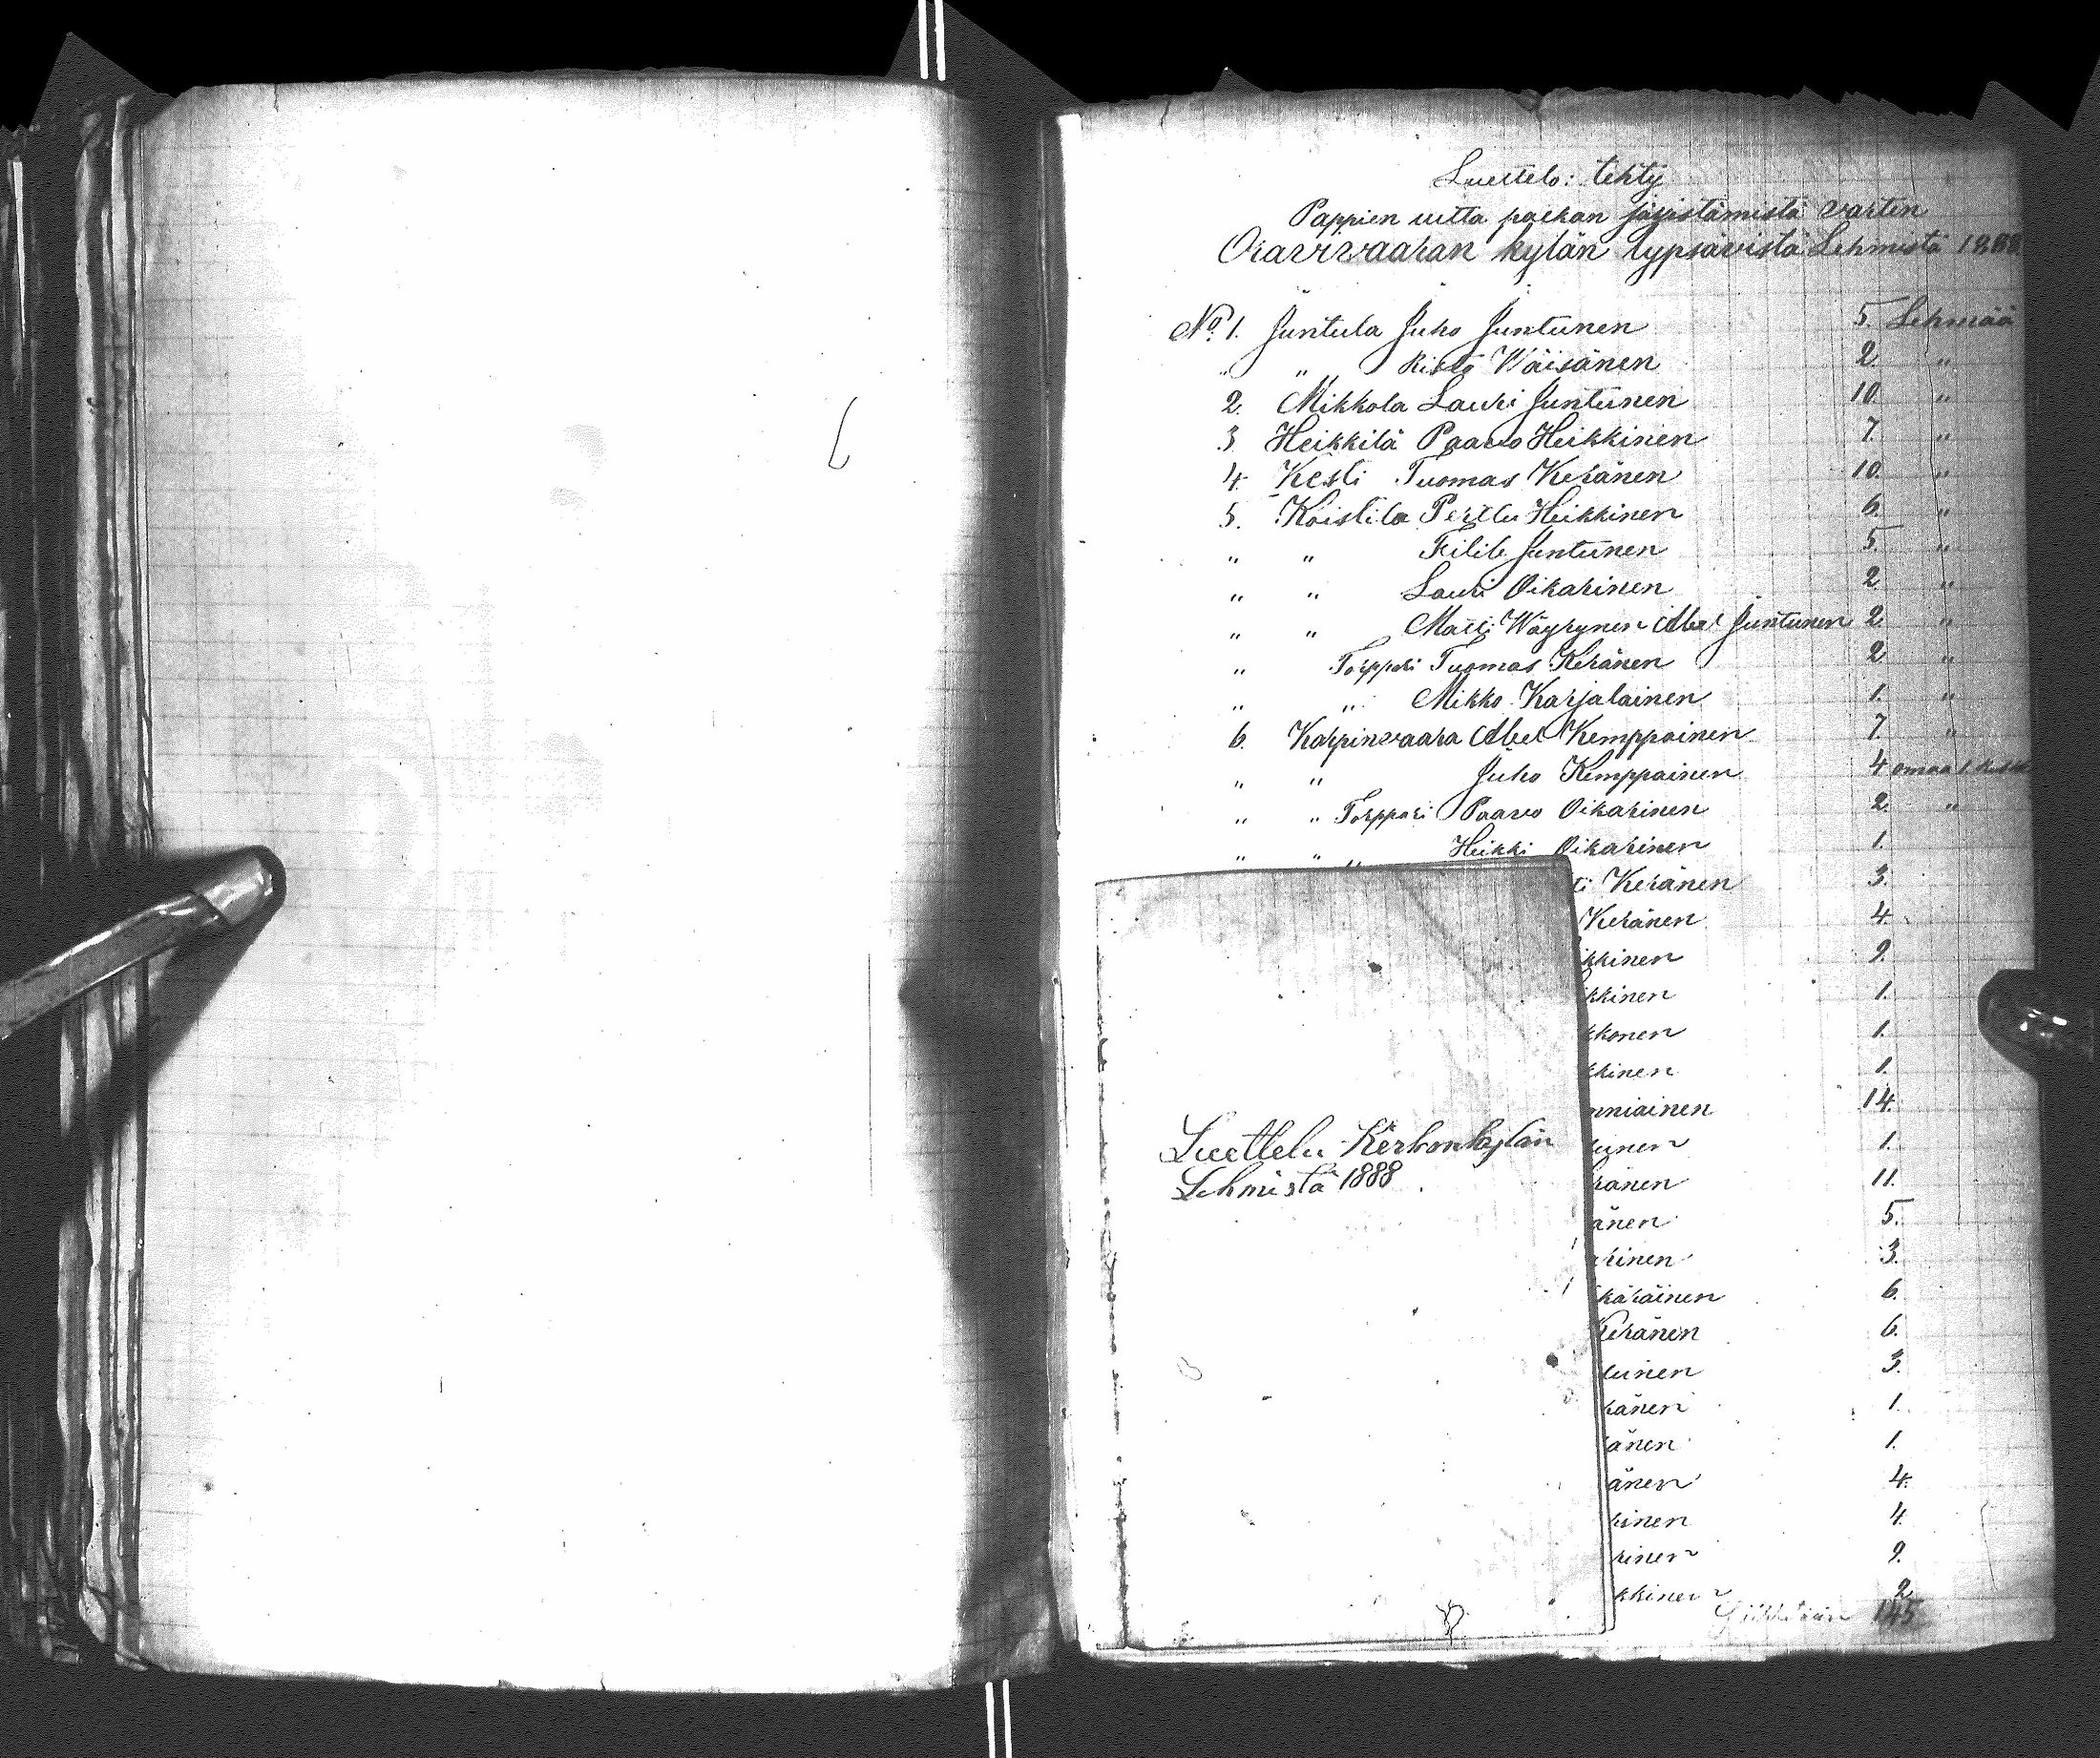 Luettelo: tehty
Pappien uutta palkan järjistämistä varten
Oravivaaran kylän lypsävistä Lehmistä 1888
No 1. Juntula Juho Juntunen 5. Lehmää
" " " Risto Wäisänen 2. "
2. Mikkola Lauri Juntunen 10. "
3 Heikkilä Paavo Heikkinen 7. "
4 Kesti Tuomas Keränen 10. "
5. Koistila Perttu Heikkinen 6. "
" " Juntunen 5. "
" " Lauri Oikarinen 2 "
" " Matti Wäyrynen Abel Juntunen 2. "
" Torppari Tuomas Keränen 2 "
" " Mikko Karjalainen 1. "
6. Karpinvaara Abel Kemppainen 7. "
" " Juho Kemppainen 4 omaa 1
" " Torppari Paavo Oikarinen 2. "
" " " Heikki Oikarinen 1.
ti Keränen 3.
Keränen 4.
kkinen 9.
kkinen 1.
kkonen 1.
kkinen 1.
nniainen 14.
Luettelu Kirkonkylän
unen 1.
Lehmistä 1888
ränen 11.
änen 5.
rinen 3.
käräinen 6.
Keränen 6.
uinen 3.
ränen 1.
änen 1.
änen 4.
rinen 4.
rinen 9.
kkinen 2
145